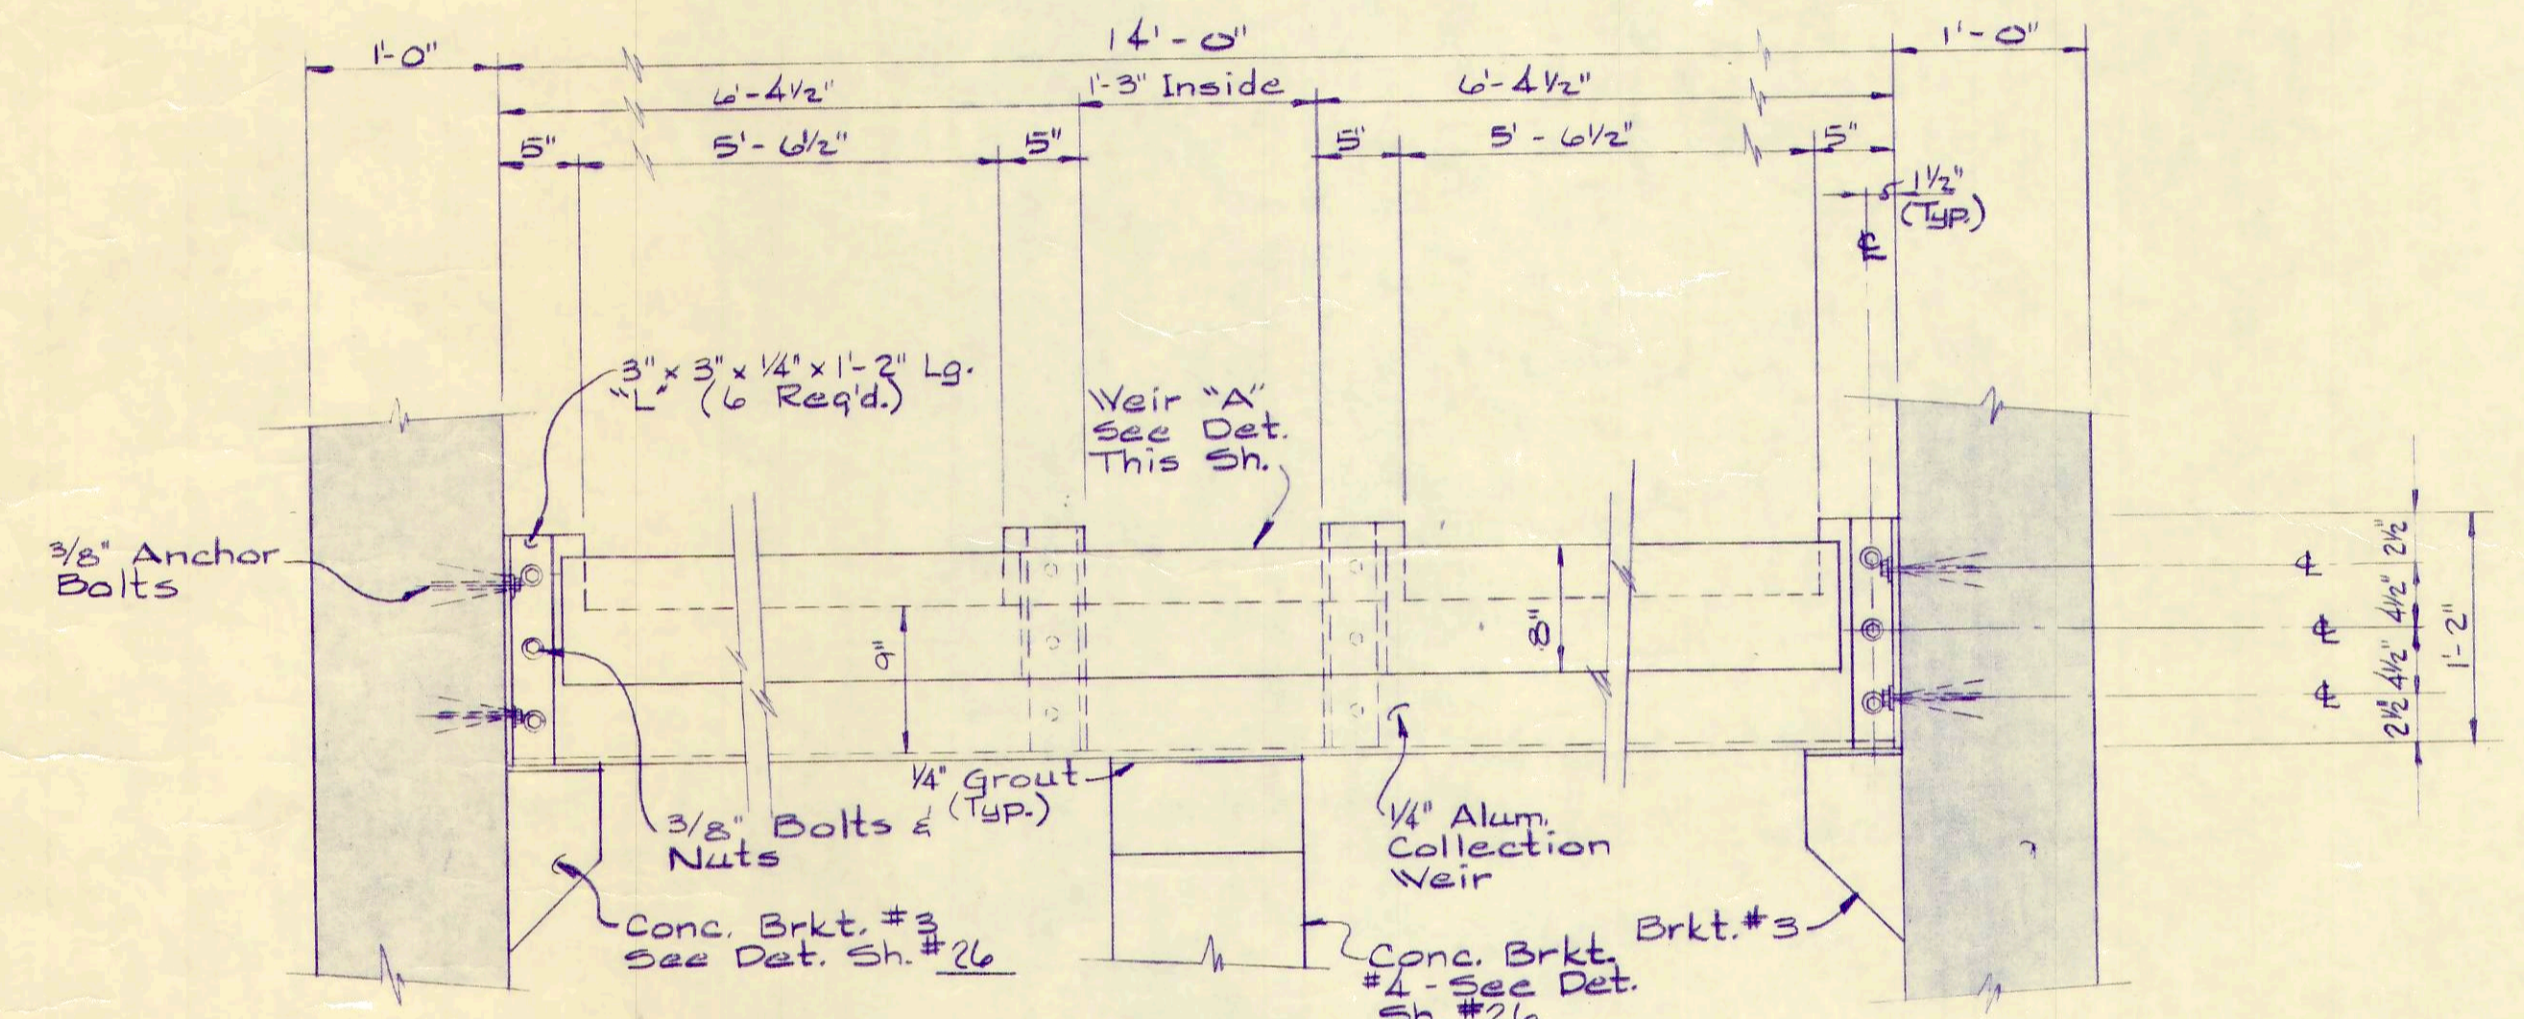 1'-0"
14'-0"
1'-0"
6'-4 1/2"
1'-3" Inside
6'-4 1/2"
5"
5'-6 1/2"
5"
5"
5'-6 1/2"
5"
1 1/2"
(Typ.)
℄
3" x 3" x 1/4" x 1'-2" Lg.
"L" (6 Req'd.)
Weir "A"
See Det.
This Sh.
3/8" Anchor
Bolts
9"
8"
℄
℄
℄
2 1/2"
4 1/2"
4 1/2"
2 1/2"
1'-2"
1/4" Grout
(Typ.)
3/8" Bolts &
Nuts
1/4" Alum.
Collection
Weir
Conc. Brkt. #3
See Det. Sh. #26
Conc. Brkt.
#4 - See Det.
Sh. #26
Brkt. #3